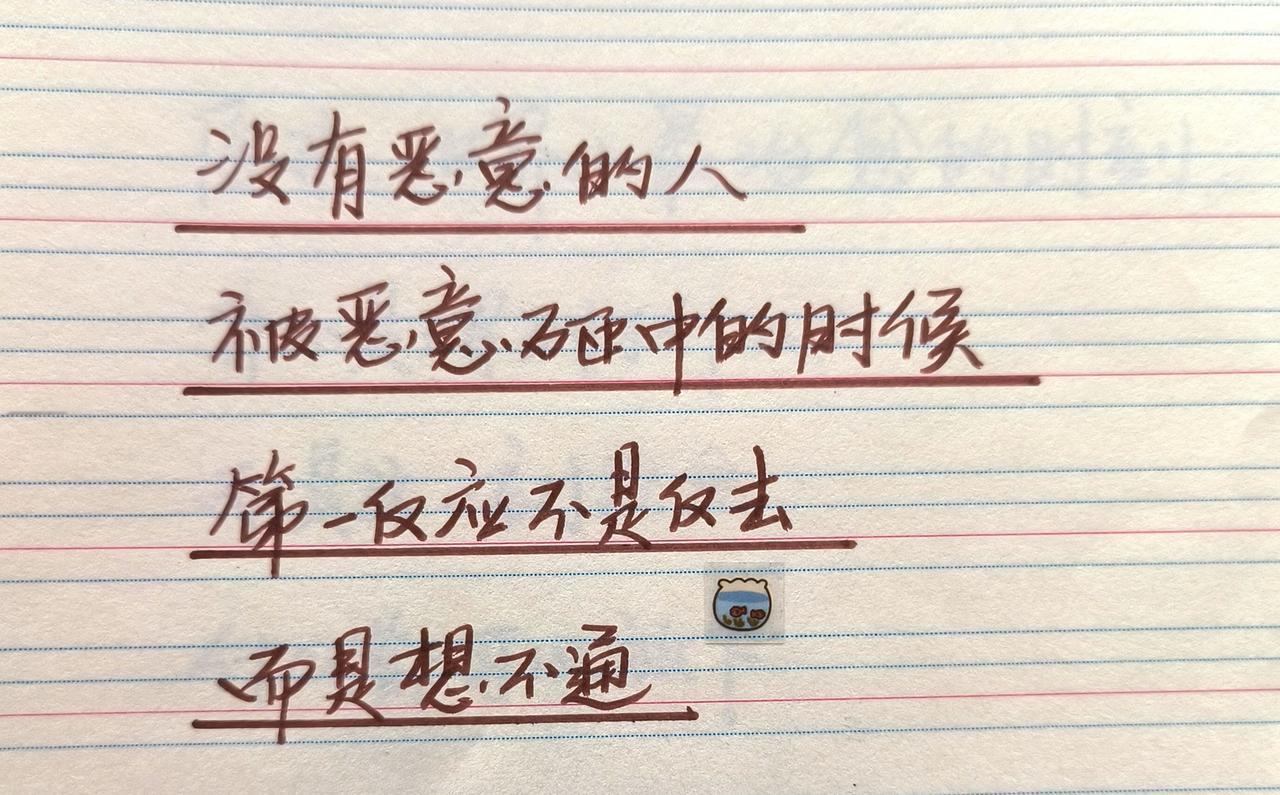 没有恶意的人
被恶意砸中的时候
第一反应不是反击
而是想不通